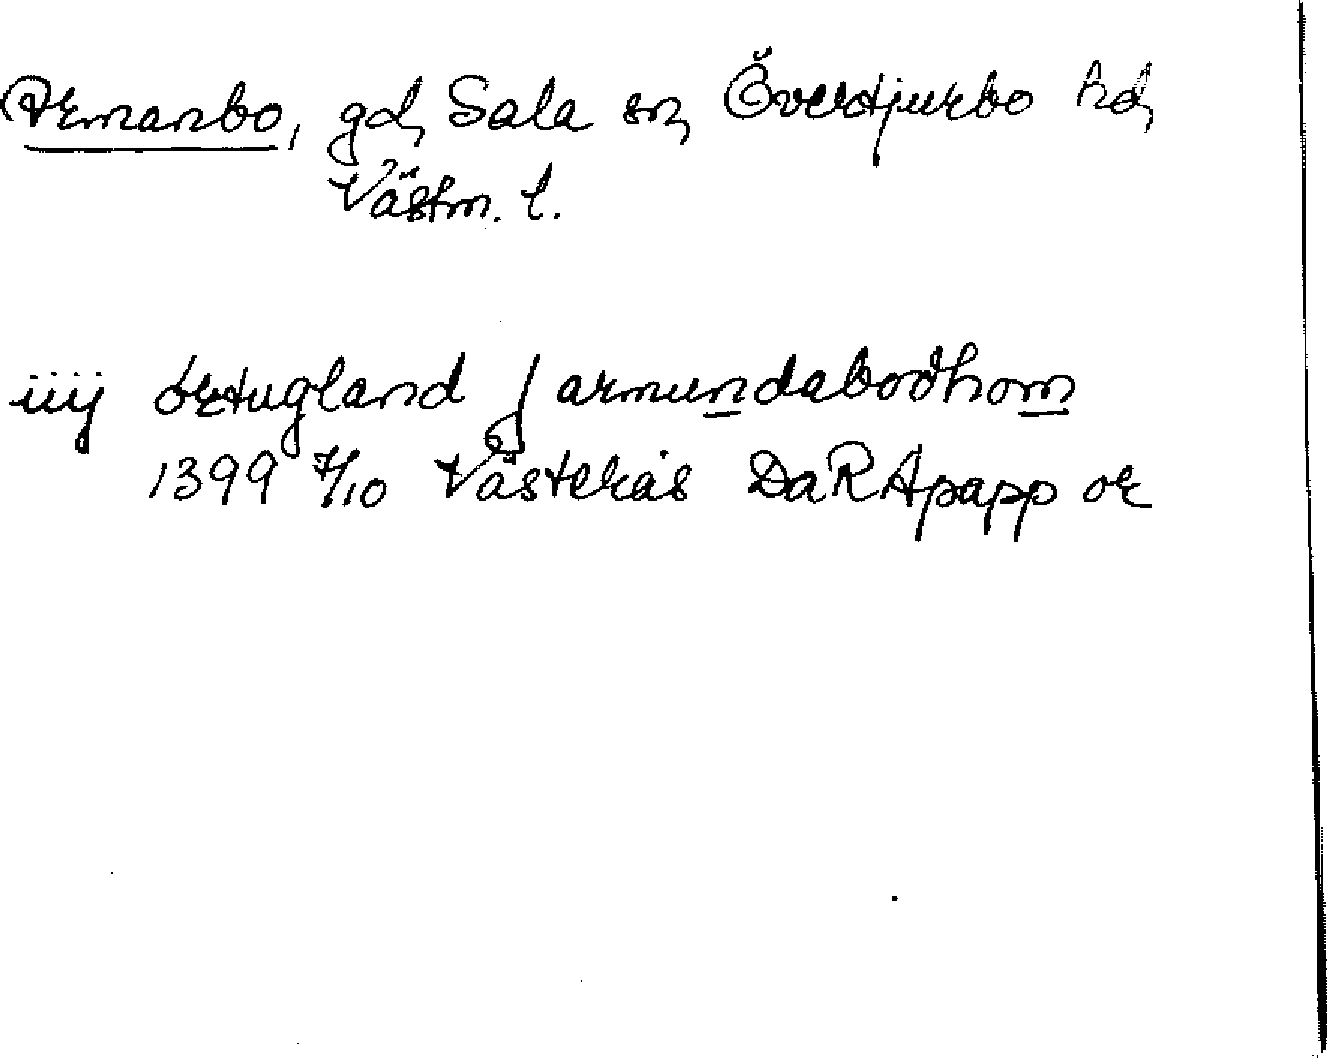 Armanbo, gd, Sala sn, Överstjurbo hd,
Västm. l.
iiij ørtugland j armundabodhom
1399 7/10 Västerås DaRApapp or